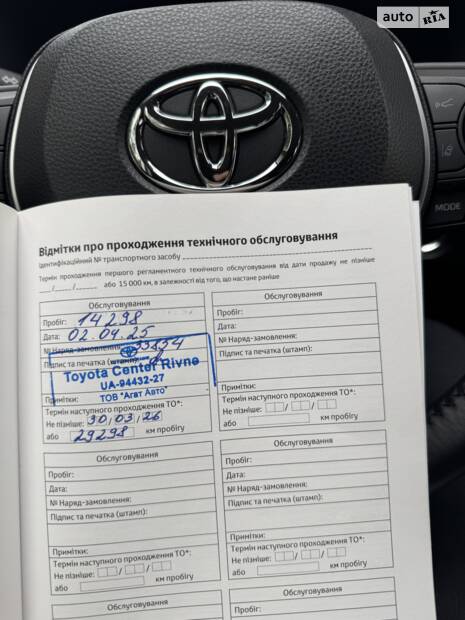 auto RIA
MODE
Відмітки про проходження технічного обслуговування
Ідентифікаційний № транспортного засобу
Термін проходження першого регламентного технічного обслуговування від дати продажу не пізніше
__/__/__ або 15 000 км, в залежності від того, що настане раніше
Обслуговування
Пробіг: 14298
Дата: 02.04.25
№ Наряд-замовлення: 33834
Підпис та печатка (штамп):
Toyota Center Rivne
UA-94432-27
ТОВ "Агат Авто"
Примітки:
Термін наступного проходження ТО*:
Не пізніше: 30/03/26
або 29298 км пробігу
Обслуговування
Пробіг:
Дата:
№ Наряд-замовлення:
Підпис та печатка (штамп):
Примітки:
Термін наступного проходження ТО*:
Не пізніше: / /
або км пробігу
Обслуговування
Пробіг:
Дата:
№ Наряд-замовлення:
Підпис та печатка (штамп):
Примітки:
Термін наступного проходження ТО*:
Не пізніше: / /
або км пробігу
Обслуговування
Пробіг:
Дата:
№ Наряд-замовлення:
Підпис та печатка (штамп):
Примітки:
Термін наступного проходження ТО*:
Не пізніше: / /
або км пробігу
Обслуговування
Обслуговування
Пробіг: